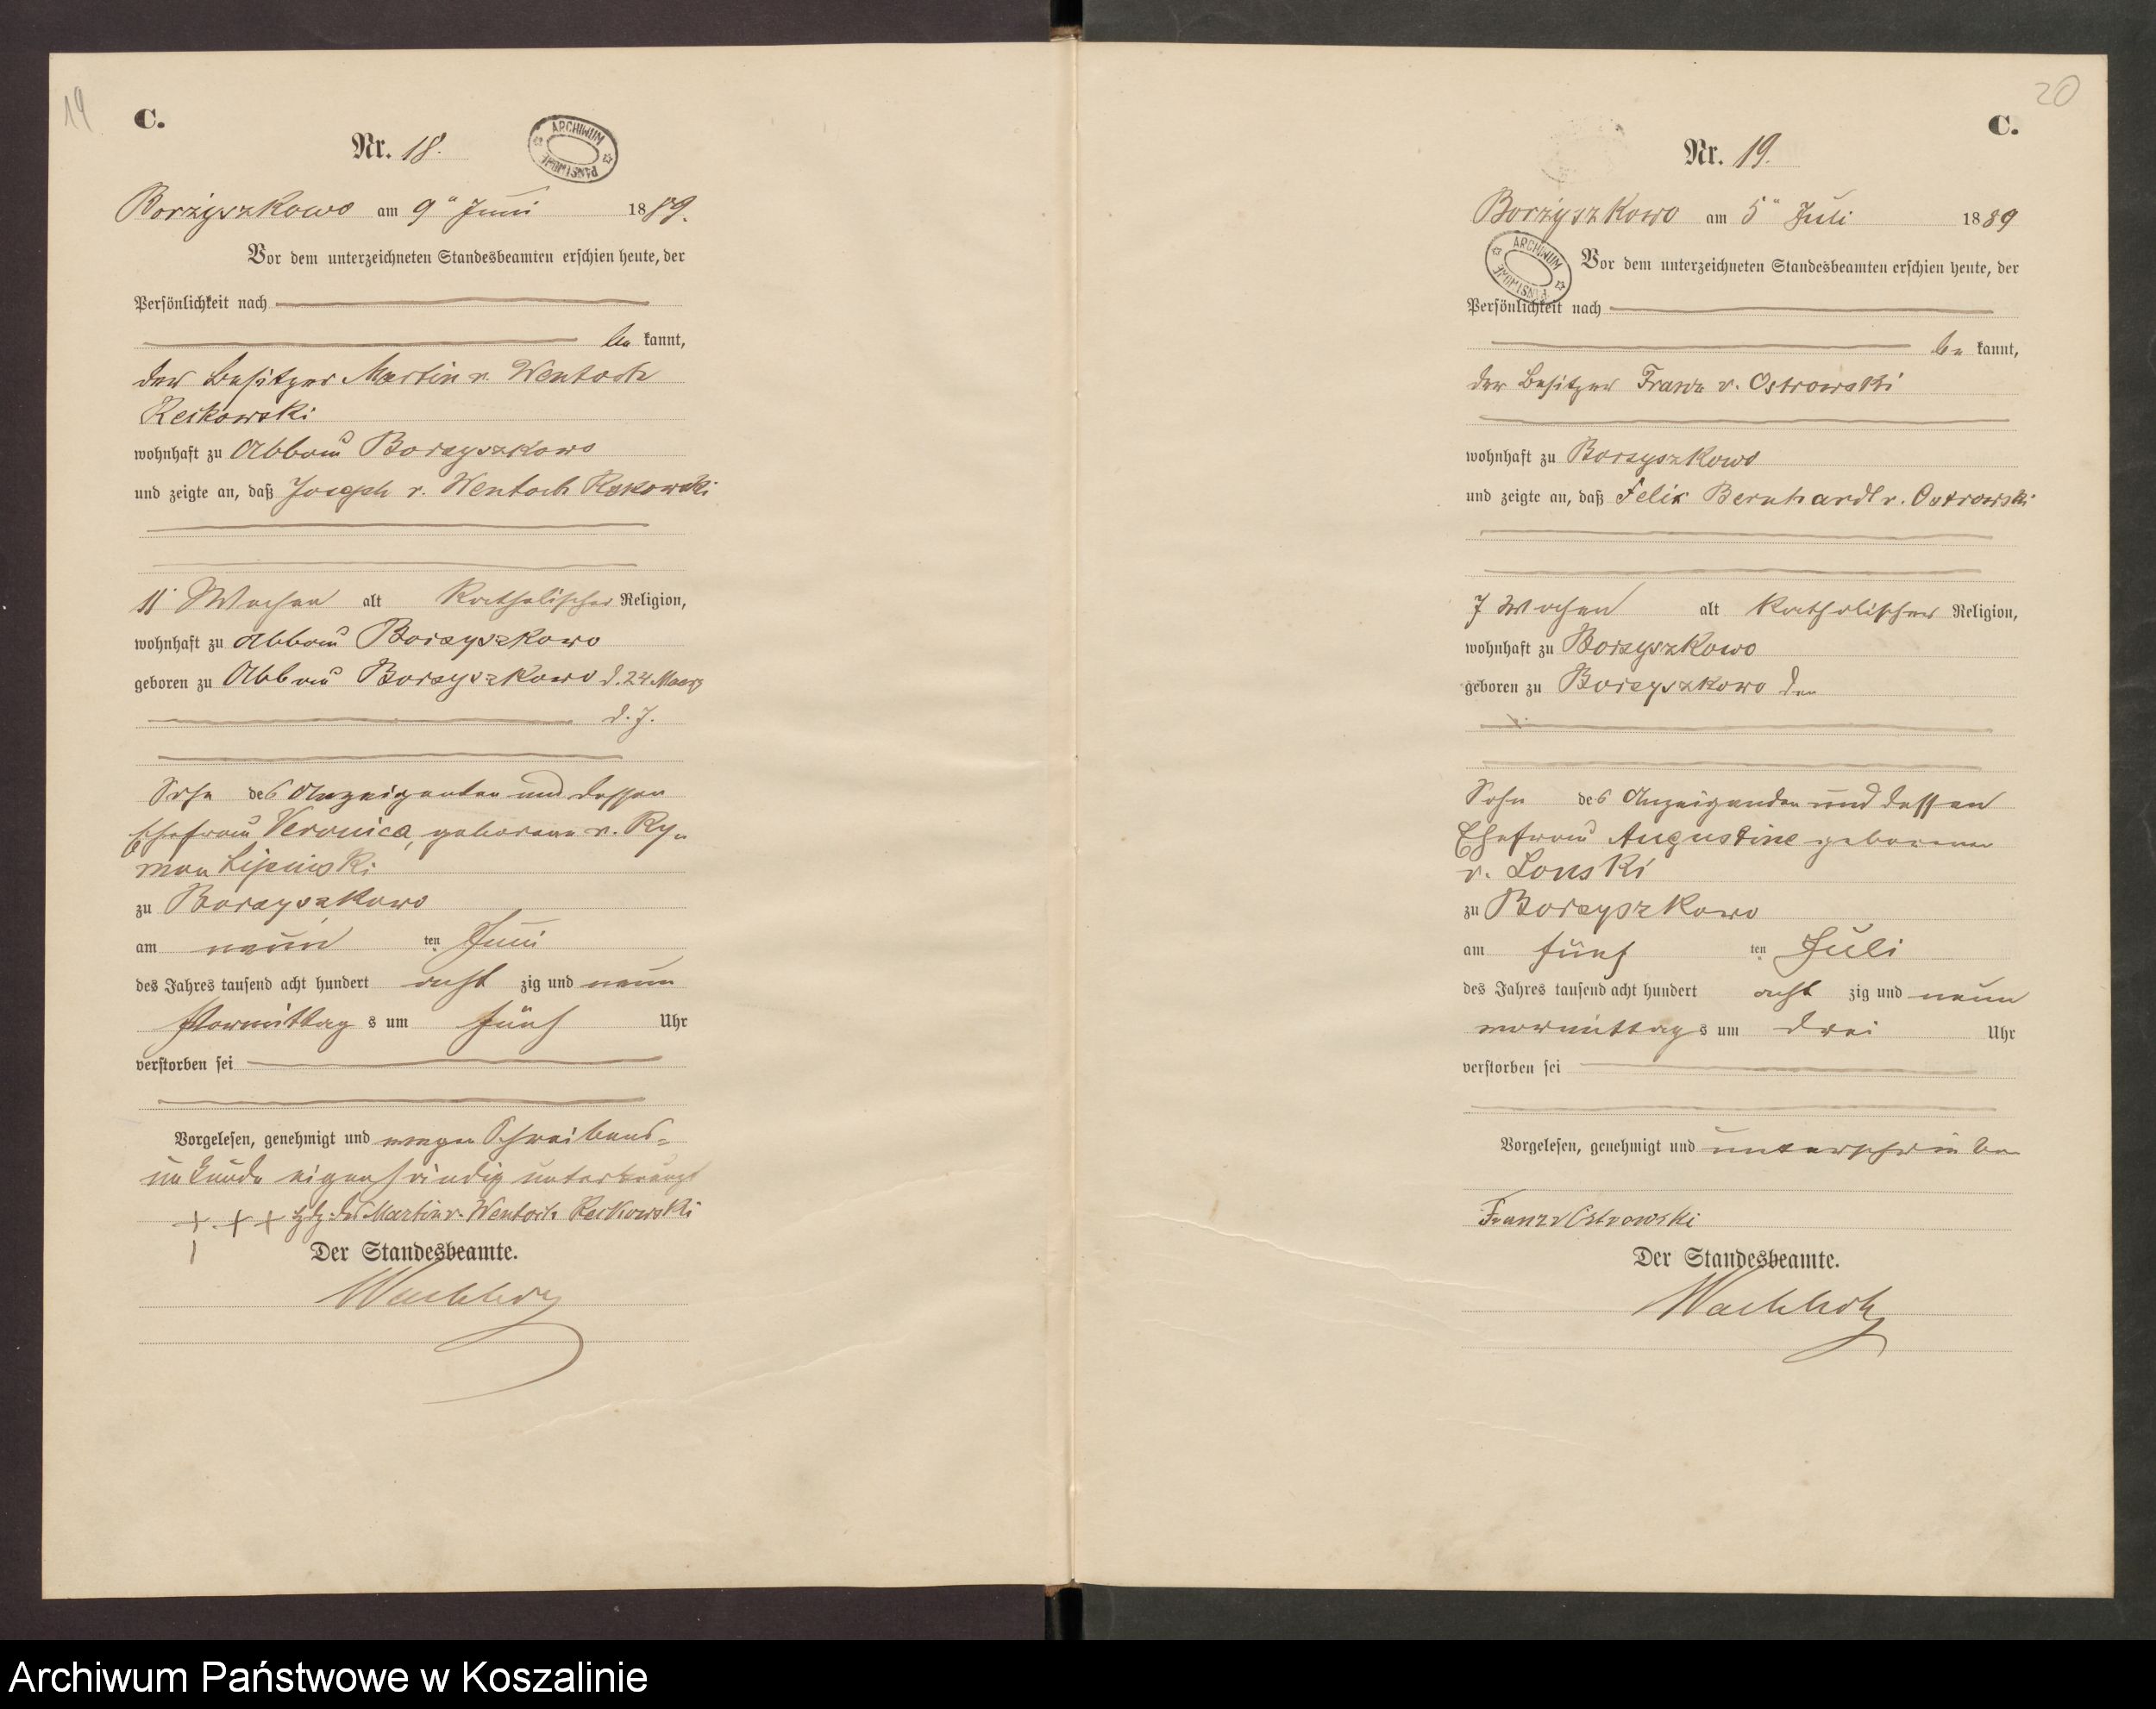 19
C.
Nr. 18.
ARCHIWUM PAŃSTWOWE
Borzyszkowo am 9" Juni 1889.
Vor dem unterzeichneten Standesbeamten erschien heute, der
Persönlichkeit nach
be kannt,
der Besitzer Martin v. Wentoch
Reikowski
wohnhaft zu Abbau Borzyszkowo
und zeigte an, daß Joseph v. Wentoch Rekowski
11 Wochen alt katholischer Religion,
wohnhaft zu Abbau Borzyszkowo
geboren zu Abbau Borzyszkowo d. 24 Maerz
d. J.
Sohn des Anzeigenden und dessen
Ehefrau Veronica, geborene v. Ry-
man Lipinski
zu Borzyszkowo
am neun ten Juni
des Jahres tausend acht hundert acht zig und neun
Vormittag s um fünf Uhr
verstorben sei
Vorgelesen, genehmigt und wegen Schreibens-
unkunde eigenhändig unterkreuzt
+ + + Hz. des Martin v. Wentoch Reikowski
Der Standesbeamte.
Wachholz
20
C.
Nr. 19.
Borzyszkowo am 5" Juli 1889
ARCHIWUM PAŃSTWOWE
Vor dem unterzeichneten Standesbeamten erschien heute, der
Persönlichkeit nach
be kannt,
der Besitzer Franz v. Ostrowski
wohnhaft zu Borzyszkowo
und zeigte an, daß Felix Bernhard v. Ostrowski
7 Wochen alt katholischer Religion,
wohnhaft zu Borzyszkowo
geboren zu Borzyszkowo den
Sohn des Anzeigenden und dessen
Ehefrau Augustine geborenen
v. Lonski
zu Borzyszkowo
am fünf ten Juli
des Jahres tausend acht hundert acht zig und neun
vormittag s um drei Uhr
verstorben sei
Vorgelesen, genehmigt und unterschrieben
Franz v Ostrowski
Der Standesbeamte.
Wachholz
Archiwum Państwowe w Koszalinie